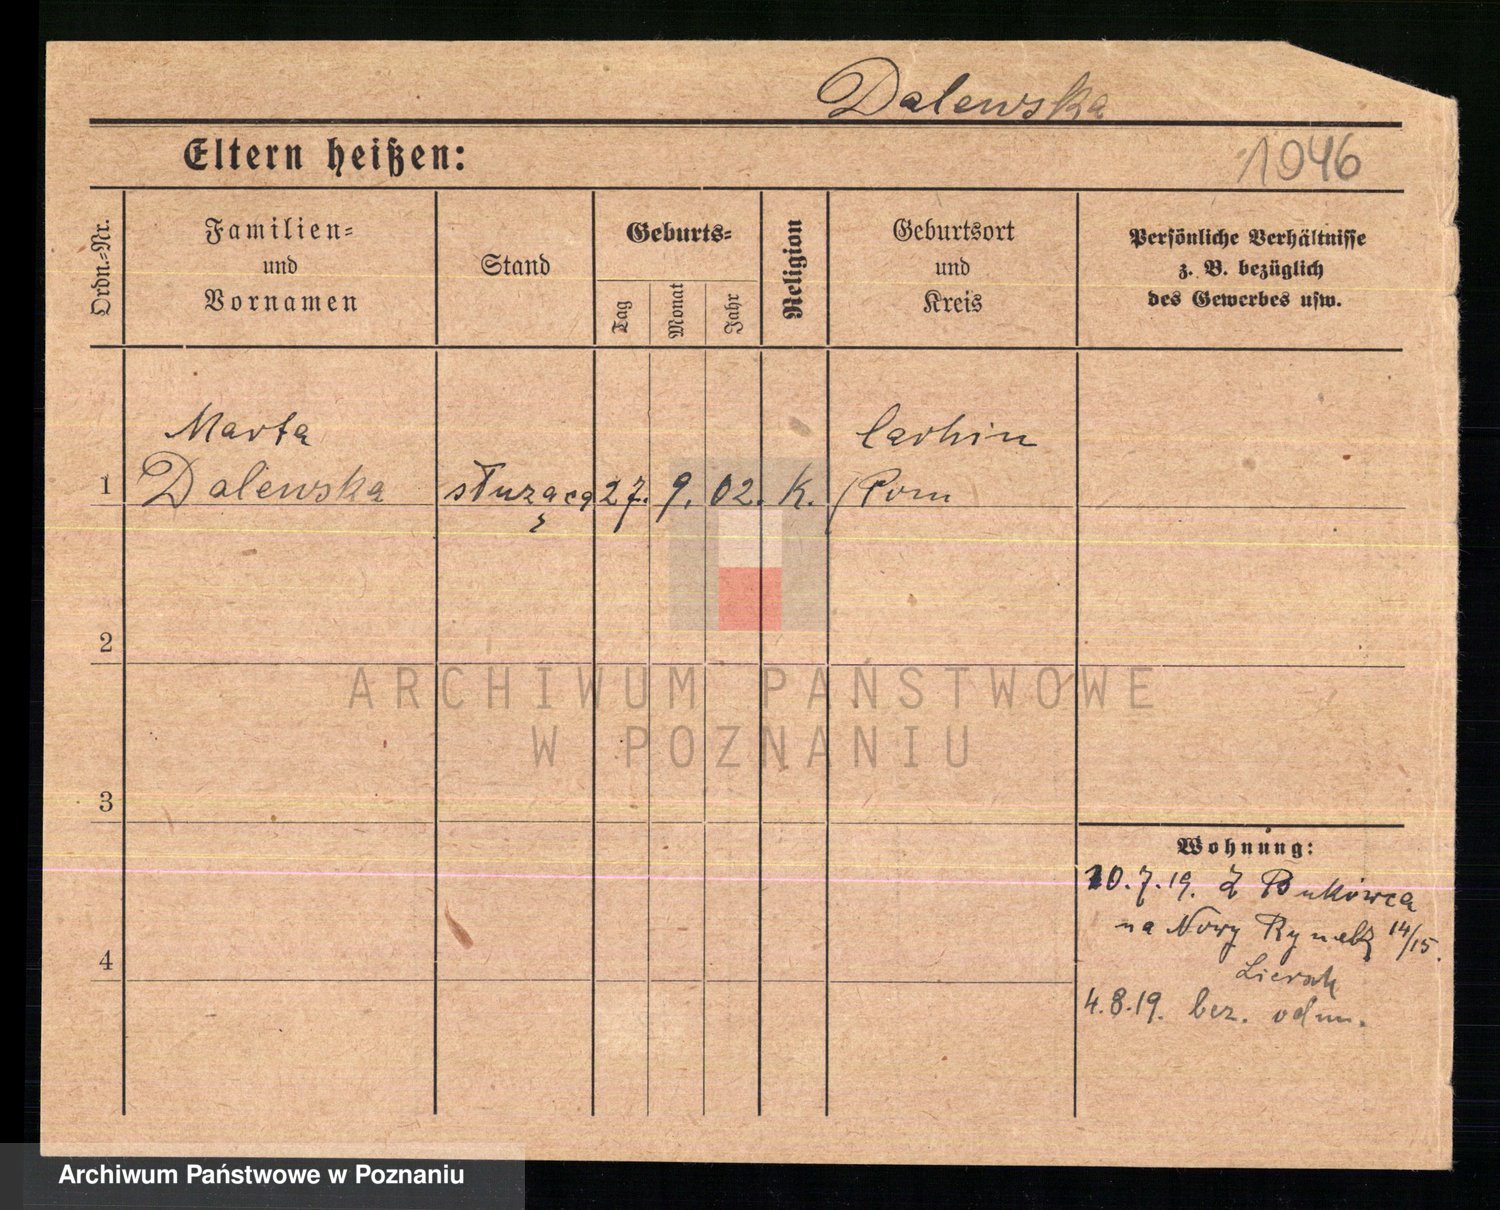 Dalewska
1946
Eltern heißen:
Ordn.-Nr.
Familien- und Vornamen
Stand
Geburts-
Tag
Monat
Jahr
Religion
Geburtsort und Kreis
Persönliche Verhältnisse
z. B. bezüglich
des Gewerbes usw.
Marta
1 Dalewska służąca 27. 9. 02. K. Pom
2
3
4
Wohnung:
10.7.19. Z Bukówca
na Nowy Rynek 14/15.
4.8.19. bez. odm.
ARCHIWUM PAŃSTWOWE
W POZNANIU
Archiwum Państwowe w Poznaniu